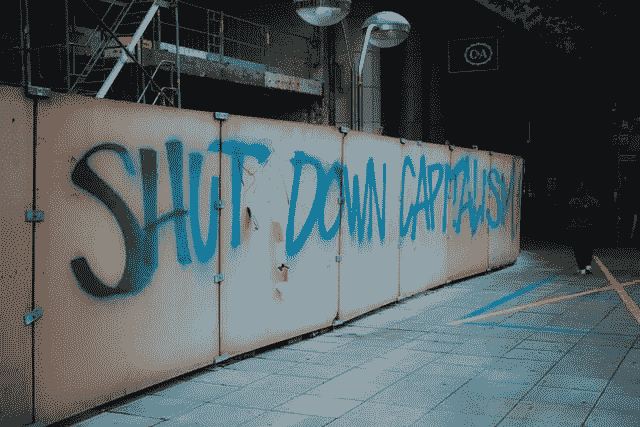 C&A
SHUT DOWN CAPITALISM